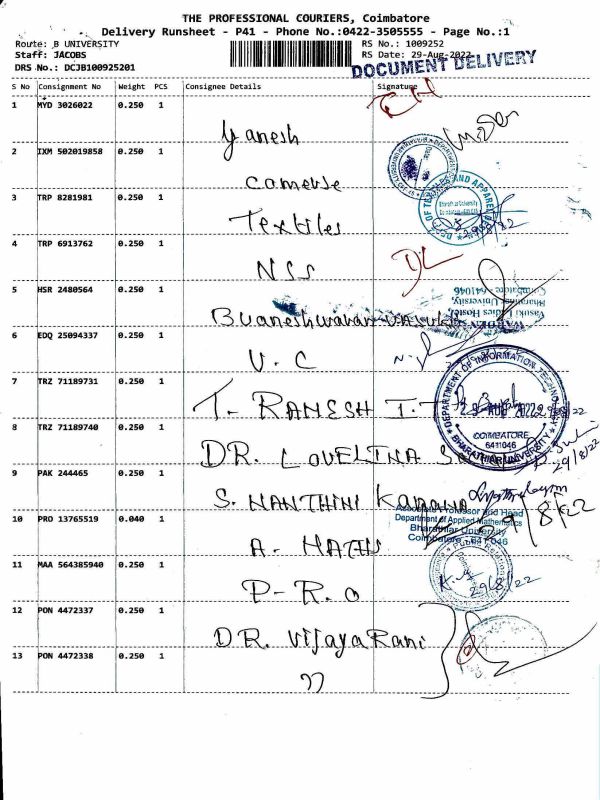 THE PROFESSIONAL COURIERS, Coimbatore
Delivery Runsheet - P41 - Phone No.:0422-3505555 - Page No.:1
Route: B UNIVERSITY
RS No.: 1009252
Staff: JACOBS
RS Date: 29-Aug-2022
DRS No.: DCJB100925201
DOCUMENT DELIVERY
S No Consignment No Weight PCS Consignee Details Signature
1 MYD 3026022 0.250 1 Yanesh
2 IXM 502019858 0.250 1 Camerse
3 TRP 8281981 0.250 1 Textiles
DEPT OF TEXTILES AND APPAREL
Bharathiar University
29/8/22
4 TRP 6913762 0.250 1 NSS
5 HSR 2480564 0.250 1 Buaneshwaran
WARDEN
Vasuki Ladies Hostel,
Bharathiar University,
Coimbatore 641046
6 EDQ 25094337 0.250 1 V.C
7 TRZ 71189731 0.250 1 T. RAMESH I.T
DEPARTMENT OF INFORMATION TECHNOLOGY
29 AUG 2022
COIMBATORE
641046
BHARATHIAR UNIVERSITY
8 TRZ 71189740 0.250 1 DR. LOVELINA
29/8/22
9 PAK 244465 0.250 1 S. NANTHINI
Associate Professor and Head
Department of Applied Mathematics
Bharathiar University
Coimbatore - 641 046
29/8/22
10 PRO 13765519 0.040 1 A. MATHS
11 MAA 564385940 0.250 1 P.R.O
29/8/22
12 PON 4472337 0.250 1 DR. VijayaRani
13 PON 4472338 0.250 1 ))